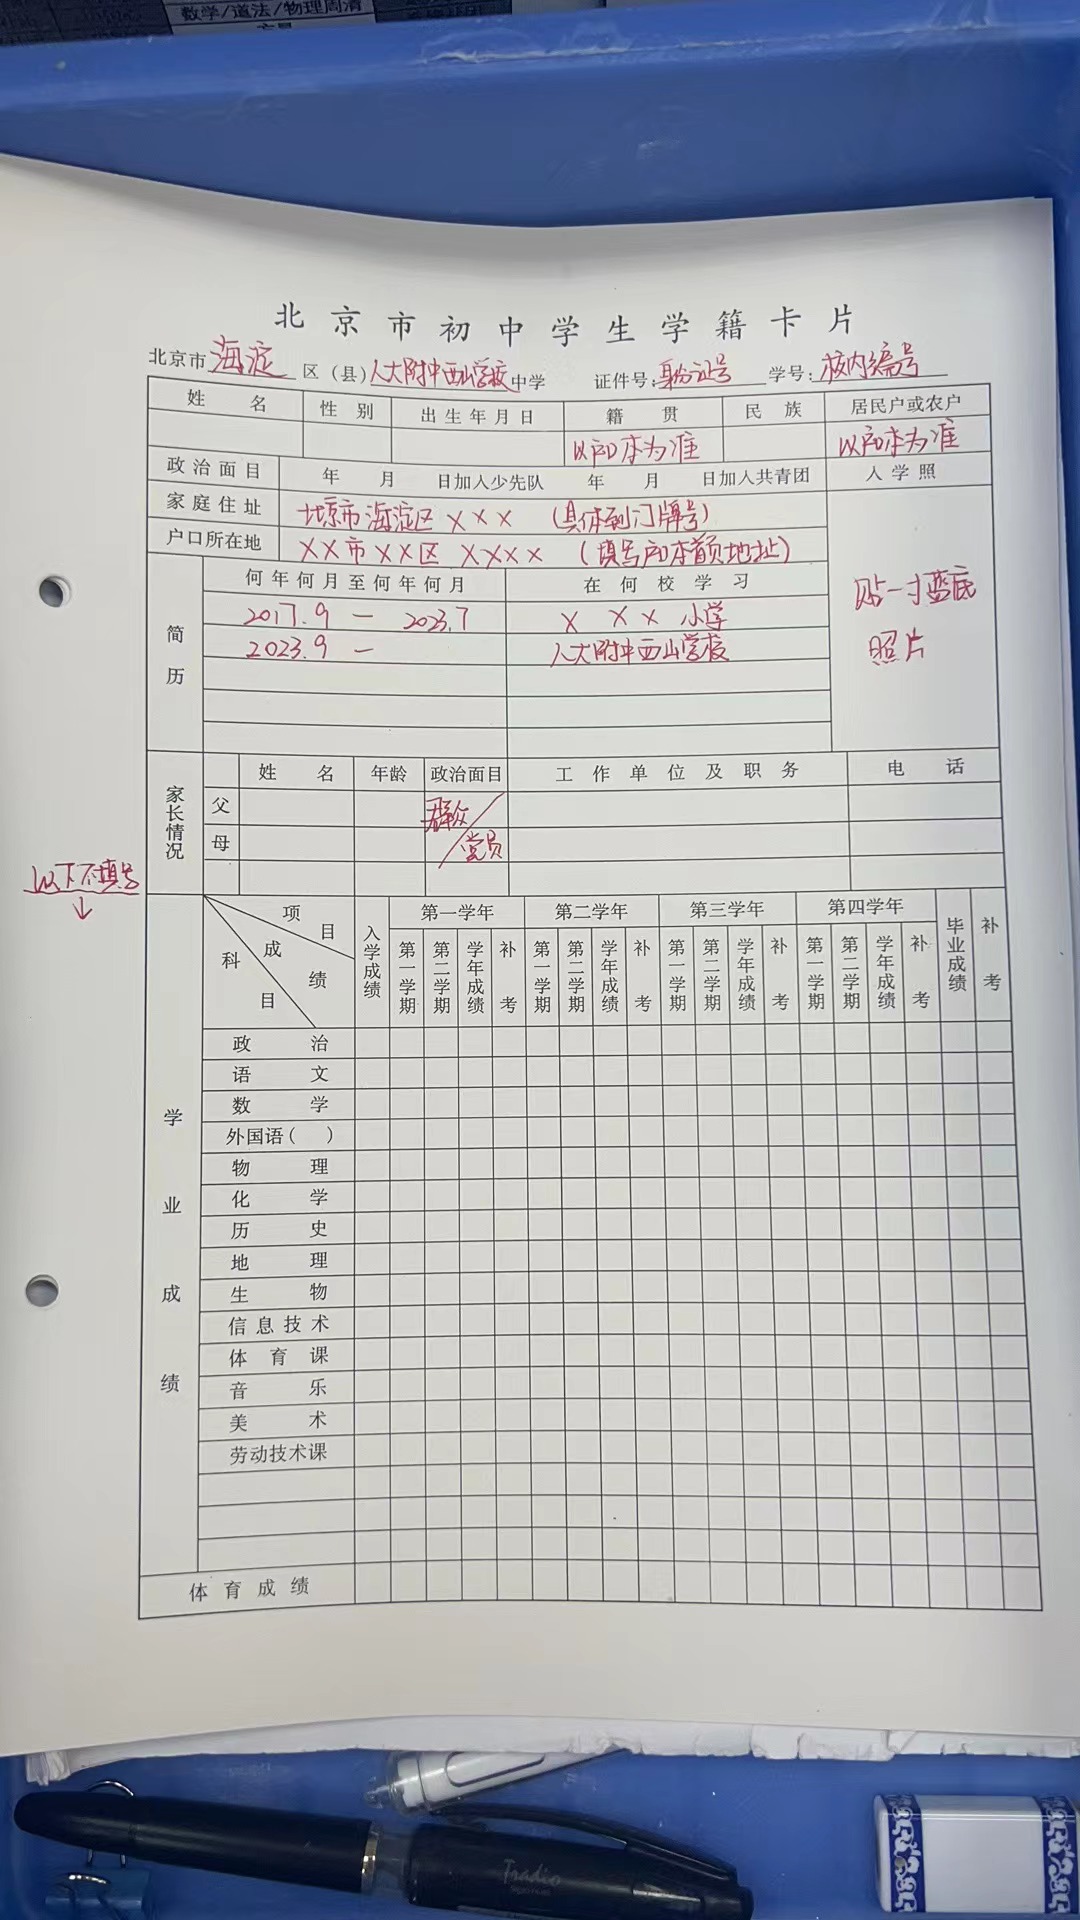 数学/道法/物理周清
北京市初中学生学籍卡片
北京市海淀区（县）人大附中西山学校中学 证件号：身份证号 学号：校内编号
姓名 性别 出生年月日 籍贯 民族 居民户或农户
以户口本为准 以户口本为准
政治面目 年 月 日加入少先队 年 月 日加入共青团 入学照
家庭住址 北京市海淀区 XXX （具体到门牌号）
户口所在地 XX市XX区 XXXX （填写户口本首页地址）
贴一寸蓝底
照片
简历 何年何月至何年何月 在何校学习
2017.9 — 2023.7 X X X 小学
2023.9 — 人大附中西山学校
家长情况 姓名 年龄 政治面目 工作单位及职务 电话
父 群众/
母 党员
以下不填写
↓
项目 成绩 科目 入学成绩 第一学年 第二学年 第三学年 第四学年 毕业成绩 补考
第一学期 第二学期 学年成绩 补考 第一学期 第二学期 学年成绩 补考 第一学期 第二学期 学年成绩 补考 第一学期 第二学期 学年成绩 补考
学业成绩
政治
语文
数学
外国语（ ）
物理
化学
历史
地理
生物
信息技术
体育课
音乐
美术
劳动技术课
体育成绩
Tradio